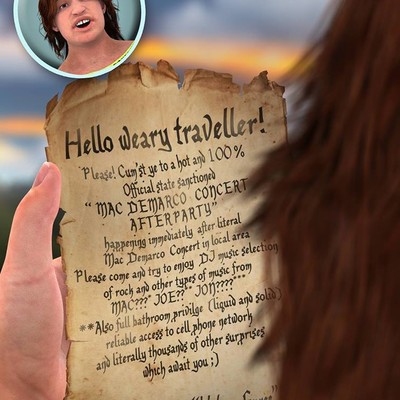 Hello weary traveller!
Please! Cum'st ye to a hot and 100%
Official state sanctioned
"MAC DEMARCO CONCERT
AFTERPARTY"
happening immediately after literal
Mac Demarco Concert in local area
Please come and try to enjoy DJ music selection
of rock and other types of music from
MAC??? JOE?? JON????***
**Also full bathroom privilge (liquid and solid)
reliable access to cell phone network
and literally thousands of other surprises
which await you ;)